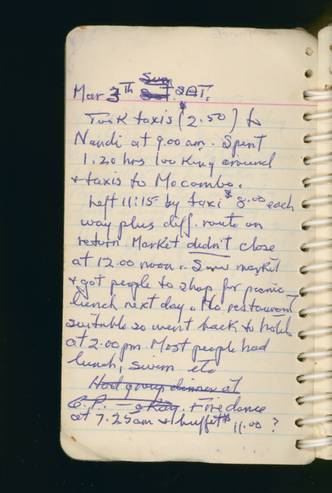 Sun
Mar 3th Sat. SAT.
Took taxis ($2.50) to
Nandi at 9.00am. Spent
1.20 hrs looking around
& taxis to Mocambo.
Left 11:15 by taxi $8.00 each
way plus diff. route on
return. Market didn't close
at 12.00 noon. Saw market
& got people to shop for picnic
lunch next day. No restaurant
suitable so went back to hotel
at 2.00pm. Most people had
lunch, swim etc
Had group dinner at
okay. Firedance
at 7.25am & buffet $11.00 ?